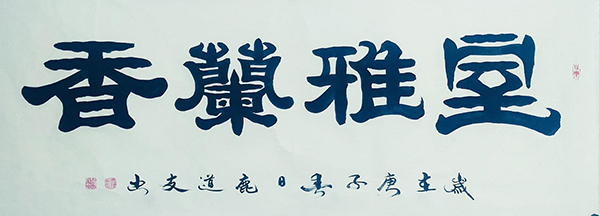 室雅蘭香
歲在庚子春日鹿道友书